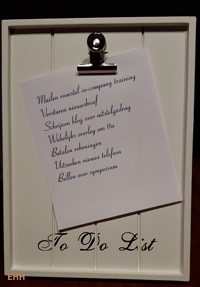 Mailen voorstel in-company training
Versturen nieuwsbrief
Schrijven blog over uitstelgedrag
Wekelijks overleg om 11u
Betalen rekeningen
Uitzoeken nieuwe telefoon
Bellen over symposium
To Do List
EHH